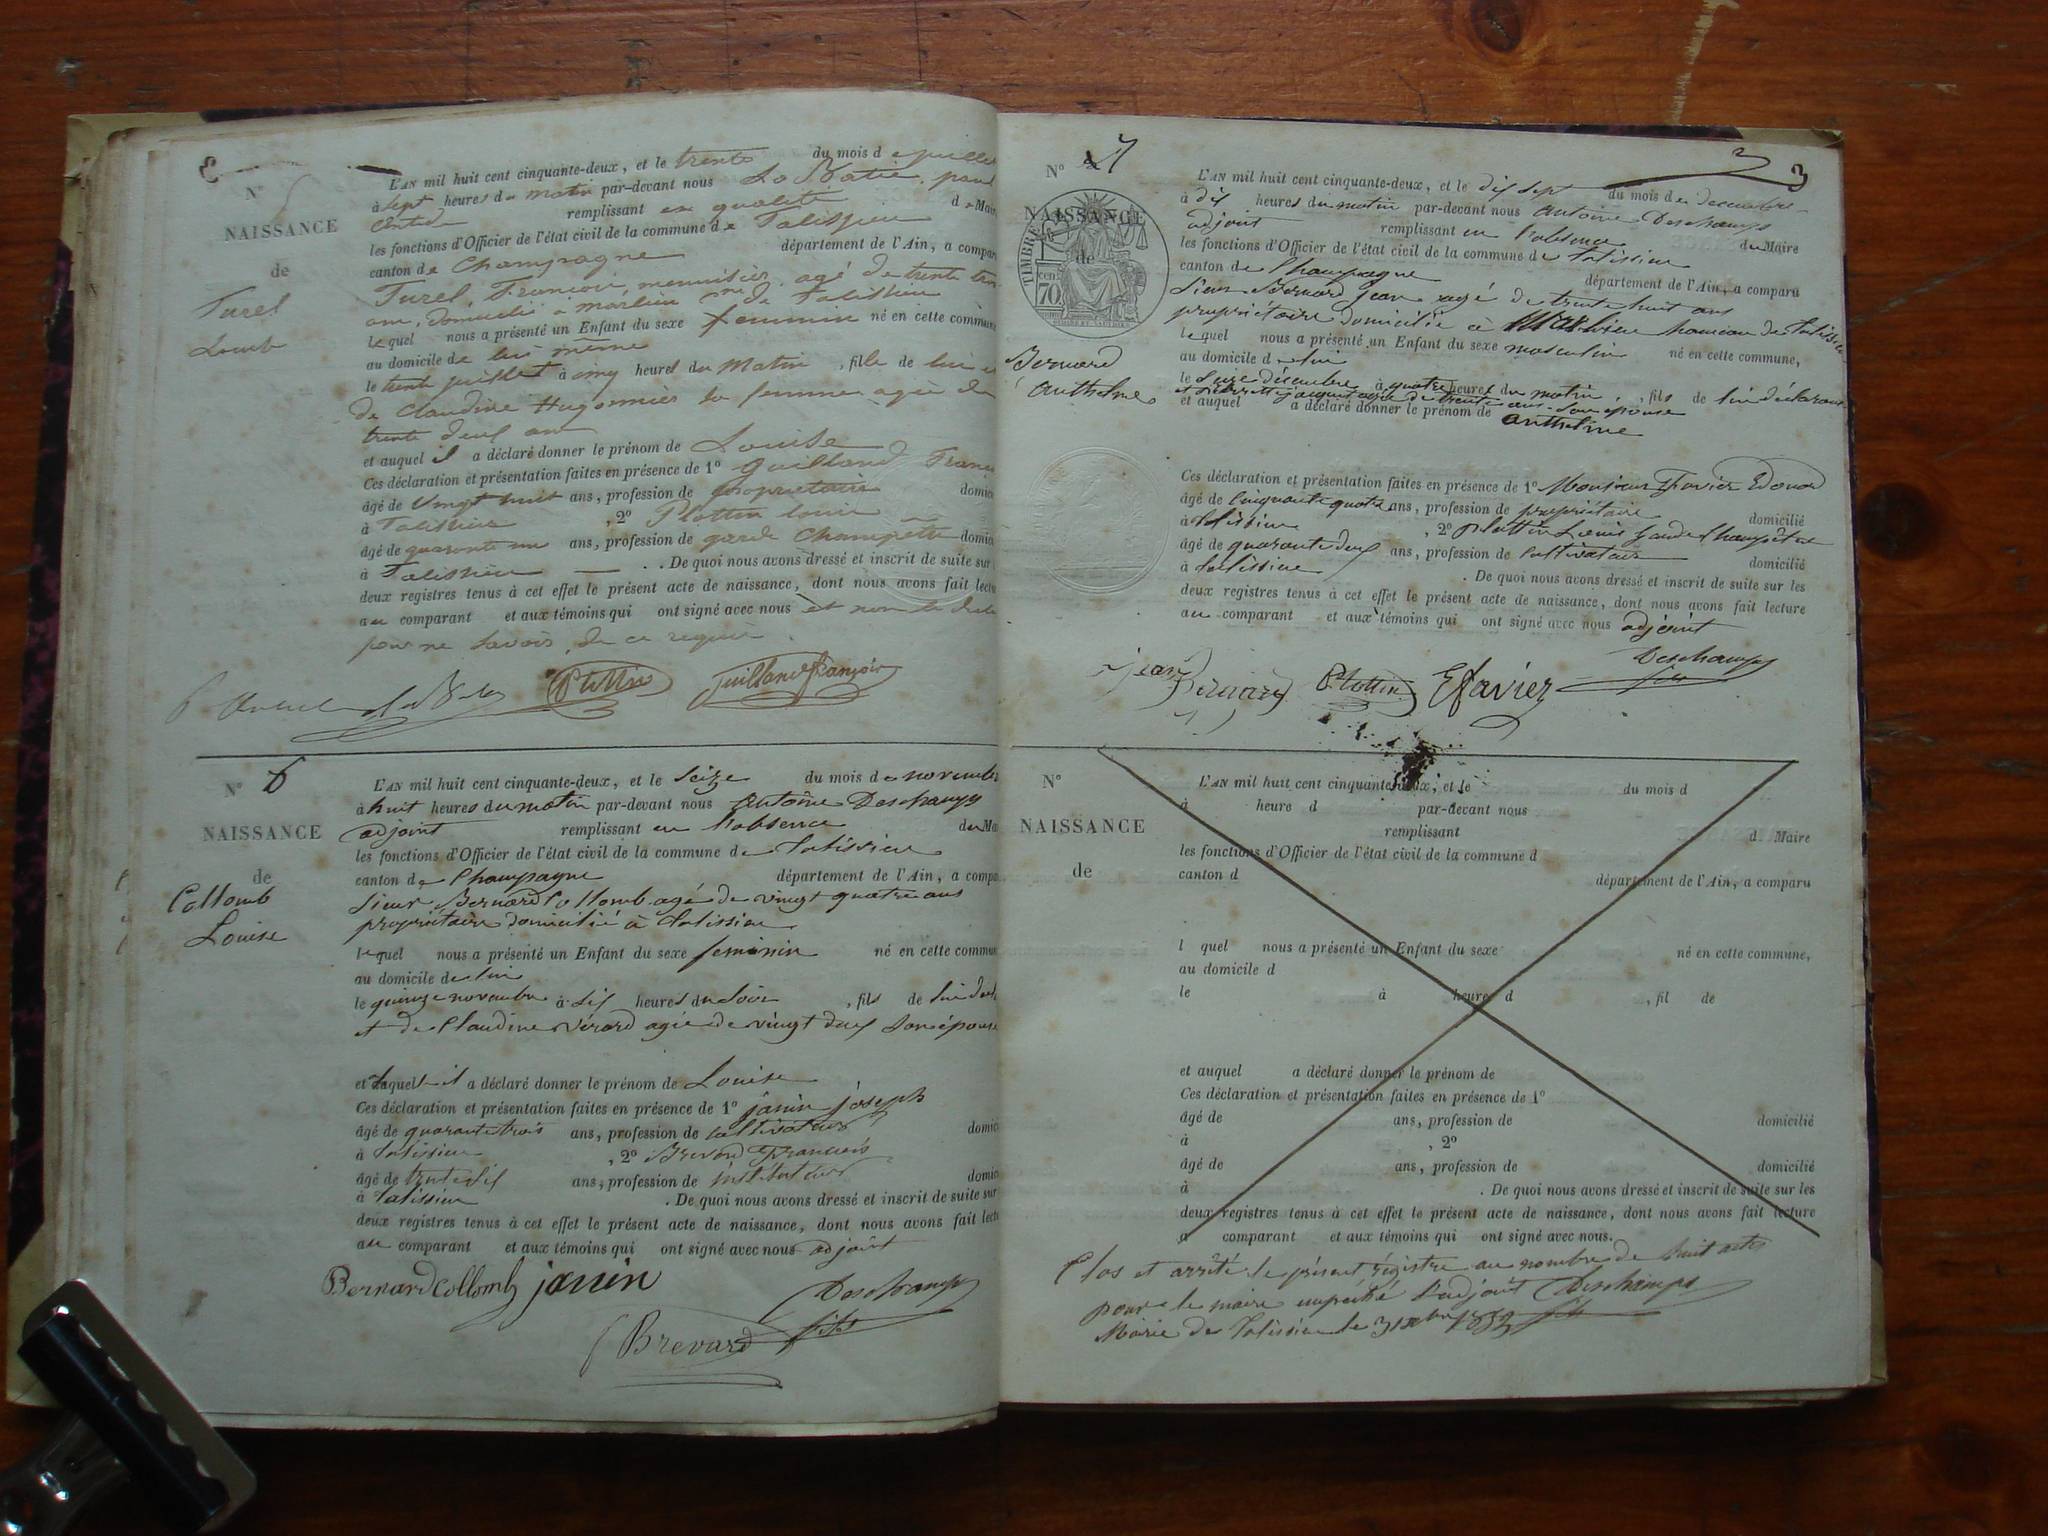 N° 5
NAISSANCE
de
Turel
Louise
L'AN mil huit cent cinquante-deux, et le trente du mois de juillet
à sept heures du matin par-devant nous
remplissant en qualité de Maire
les fonctions d'Officier de l'état civil de la commune de Talissieu
canton de Champagne département de l'Ain, a compar
Turel, François, menuisier, agé de trente
ans, domicilié à marlieu de Talissieu
lequel nous a présenté un Enfant du sexe feminin né en cette commune
au domicile de lui même
le trente juillet à cinq heures du Matin, fille de lui e
de Claudine Hugonnier sa femme agée de
trente deux ans
et auquel il a déclaré donner le prénom de Louise
Ces déclaration et présentation faites en présence de 1° Guilland Franç
âgé de Vingt huit ans, profession de proprietaire domici
à Talissieu, 2° Plottin louis
âgé de quarante un ans, profession de garde Champêtre domici
à Talissieu — . De quoi nous avons dressé et inscrit de suite sur
deux registres tenus à cet effet le présent acte de naissance, dont nous avons fait lectu
au comparant et aux témoins qui ont signé avec nous et non le
pour ne savoir, de ce requis
Plottin Guilland françois
N° 6
NAISSANCE
de
Collomb
Louise
L'AN mil huit cent cinquante-deux, et le seize du mois de novembre
à huit heures du matin par-devant nous Antoine Deschamps
adjoint remplissant en l'absence du Mai
les fonctions d'Officier de l'état civil de la commune de talissieu
canton de Champagne département de l'Ain, a compa
sieur Bernard Collomb agé de vingt quatre ans
propriétaire domicilié à talissieu
lequel nous a présenté un Enfant du sexe feminin né en cette commun
au domicile de lui
le quinze novembre à six heures du soir, fils de lui decl
et de Claudine Vérard agée de vingt deux son épouse
et laquelle il a déclaré donner le prénom de Louise
Ces déclaration et présentation faites en présence de 1° janin joseph
âgé de quarante trois ans, profession de cultivateur domici
à talissieu, 2° Brevard François
âgé de trente six ans, profession de instituteur domici
à talissieu. De quoi nous avons dressé et inscrit de suite sur
deux registres tenus à cet effet le présent acte de naissance, dont nous avons fait lectu
au comparant et aux témoins qui ont signé avec nous adjoint
Bernard Collomb janin Deschamps
Brevard fils
3
N° 7
TIMBRE
70
NAISSANCE
de
Bernard
Anthelme
L'AN mil huit cent cinquante-deux, et le dix sept du mois de decembre
à dix heures du matin par-devant nous Antoine Deschamps
adjoint remplissant en l'absence du Maire
les fonctions d'Officier de l'état civil de la commune de talissieu
canton de Champagne département de l'Ain, a comparu
sieur Bernard jean agé de trente huit ans
propriétaire domicilié à Marlieu hameau de talissieu
lequel nous a présenté un Enfant du sexe masculin né en cette commune,
au domicile de lui
le seize décembre à quatre heures du matin, fils de lui déclarant
agée de trente ans son épouse
et auquel a déclaré donner le prénom de anthelme
Ces déclaration et présentation faites en présence de 1° Monsieur Favier Edouard
âgé de cinquante quatre ans, profession de propriétaire domicilié
à talissieu, 2° plottin Louis garde champêtre
âgé de quarante deux ans, profession de cultivateur domicilié
à talissieu. De quoi nous avons dressé et inscrit de suite sur les
deux registres tenus à cet effet le présent acte de naissance, dont nous avons fait lecture
au comparant et aux témoins qui ont signé avec nous adjoint
jean Bernard Plottin E favier Deschamps fils
N°
NAISSANCE
de
L'AN mil huit cent cinquante-deux, et le du mois d
à heure d par-devant nous
remplissant d Maire
les fonctions d'Officier de l'état civil de la commune d
canton d département de l'Ain, a comparu
l quel nous a présenté un Enfant du sexe né en cette commune,
au domicile d
le à heure d , fil de
et auquel a déclaré donner le prénom de
Ces déclaration et présentation faites en présence de 1°
âgé de ans, profession de domicilié
à , 2°
âgé de ans, profession de domicilié
à . De quoi nous avons dressé et inscrit de suite sur les
deux registres tenus à cet effet le présent acte de naissance, dont nous avons fait lecture
a comparant et aux témoins qui ont signé avec nous.
Clos et arrêté le présent régistre au nombre de huit actes
pour le maire empêché l'adjoint Deschamps
Mairie de Talissieu le 31 xbre 1852 fils